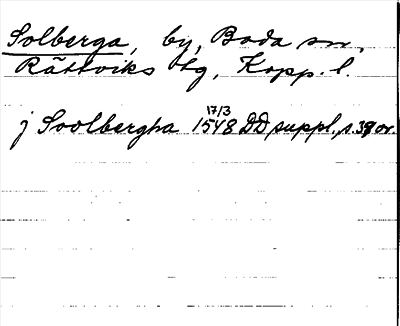 Solberga, by, Boda sn,
Rättviks tg, Kopp. l.
j Soolbergha 17/3 1548 DD suppl., s. 39 or.